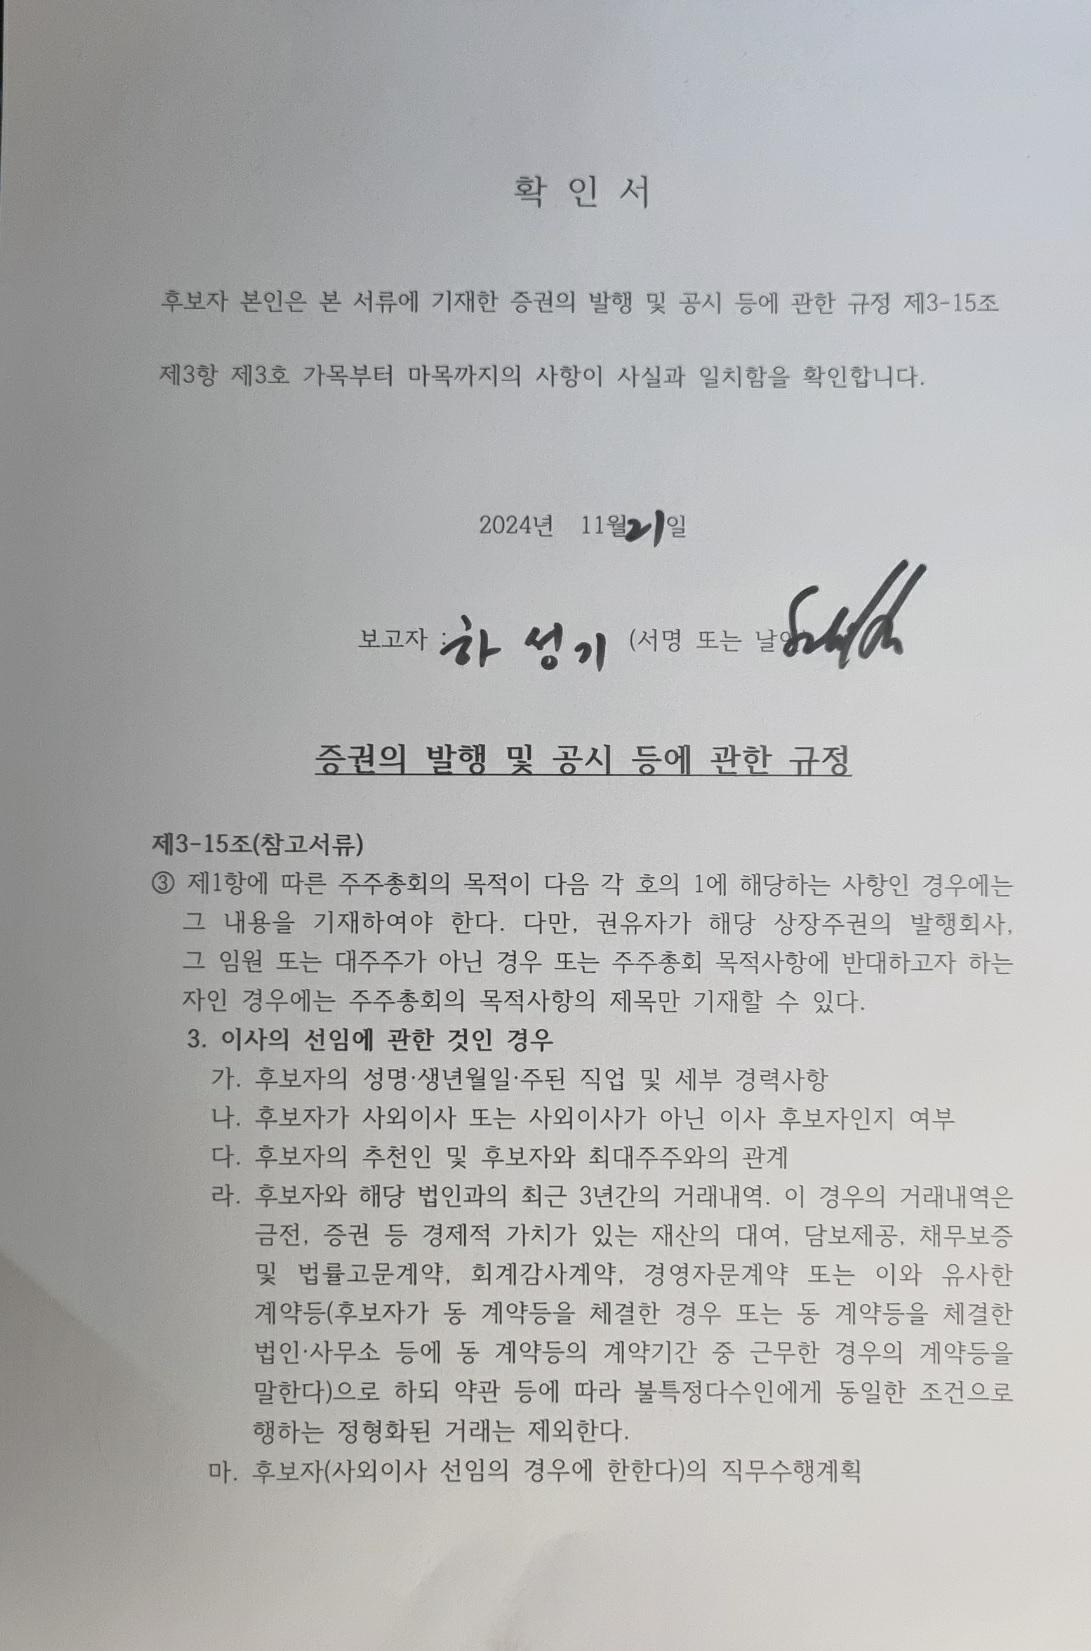 확 인 서
후보자 본인은 본 서류에 기재한 증권의 발행 및 공시 등에 관한 규정 제3-15조
제3항 제3호 가목부터 마목까지의 사항이 사실과 일치함을 확인합니다.
2024년 11월 21일
보고자 : 하 성 기 (서명 또는 날인
증권의 발행 및 공시 등에 관한 규정
제3-15조(참고서류)
③ 제1항에 따른 주주총회의 목적이 다음 각 호의 1에 해당하는 사항인 경우에는
그 내용을 기재하여야 한다. 다만, 권유자가 해당 상장주권의 발행회사,
그 임원 또는 대주주가 아닌 경우 또는 주주총회 목적사항에 반대하고자 하는
자인 경우에는 주주총회의 목적사항의 제목만 기재할 수 있다.
3. 이사의 선임에 관한 것인 경우
가. 후보자의 성명·생년월일·주된 직업 및 세부 경력사항
나. 후보자가 사외이사 또는 사외이사가 아닌 이사 후보자인지 여부
다. 후보자의 추천인 및 후보자와 최대주주와의 관계
라. 후보자와 해당 법인과의 최근 3년간의 거래내역. 이 경우의 거래내역은
금전, 증권 등 경제적 가치가 있는 재산의 대여, 담보제공, 채무보증
및 법률고문계약, 회계감사계약, 경영자문계약 또는 이와 유사한
계약등(후보자가 동 계약등을 체결한 경우 또는 동 계약등을 체결한
법인·사무소 등에 동 계약등의 계약기간 중 근무한 경우의 계약등을
말한다)으로 하되 약관 등에 따라 불특정다수인에게 동일한 조건으로
행하는 정형화된 거래는 제외한다.
마. 후보자(사외이사 선임의 경우에 한한다)의 직무수행계획